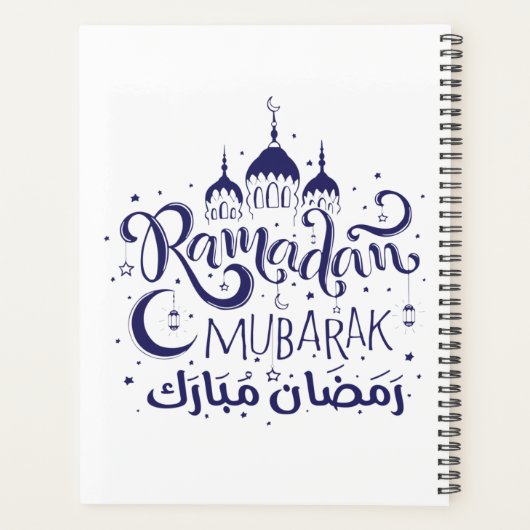 Ramadan
MUBARAK
رَمَضَان مُبَارَك